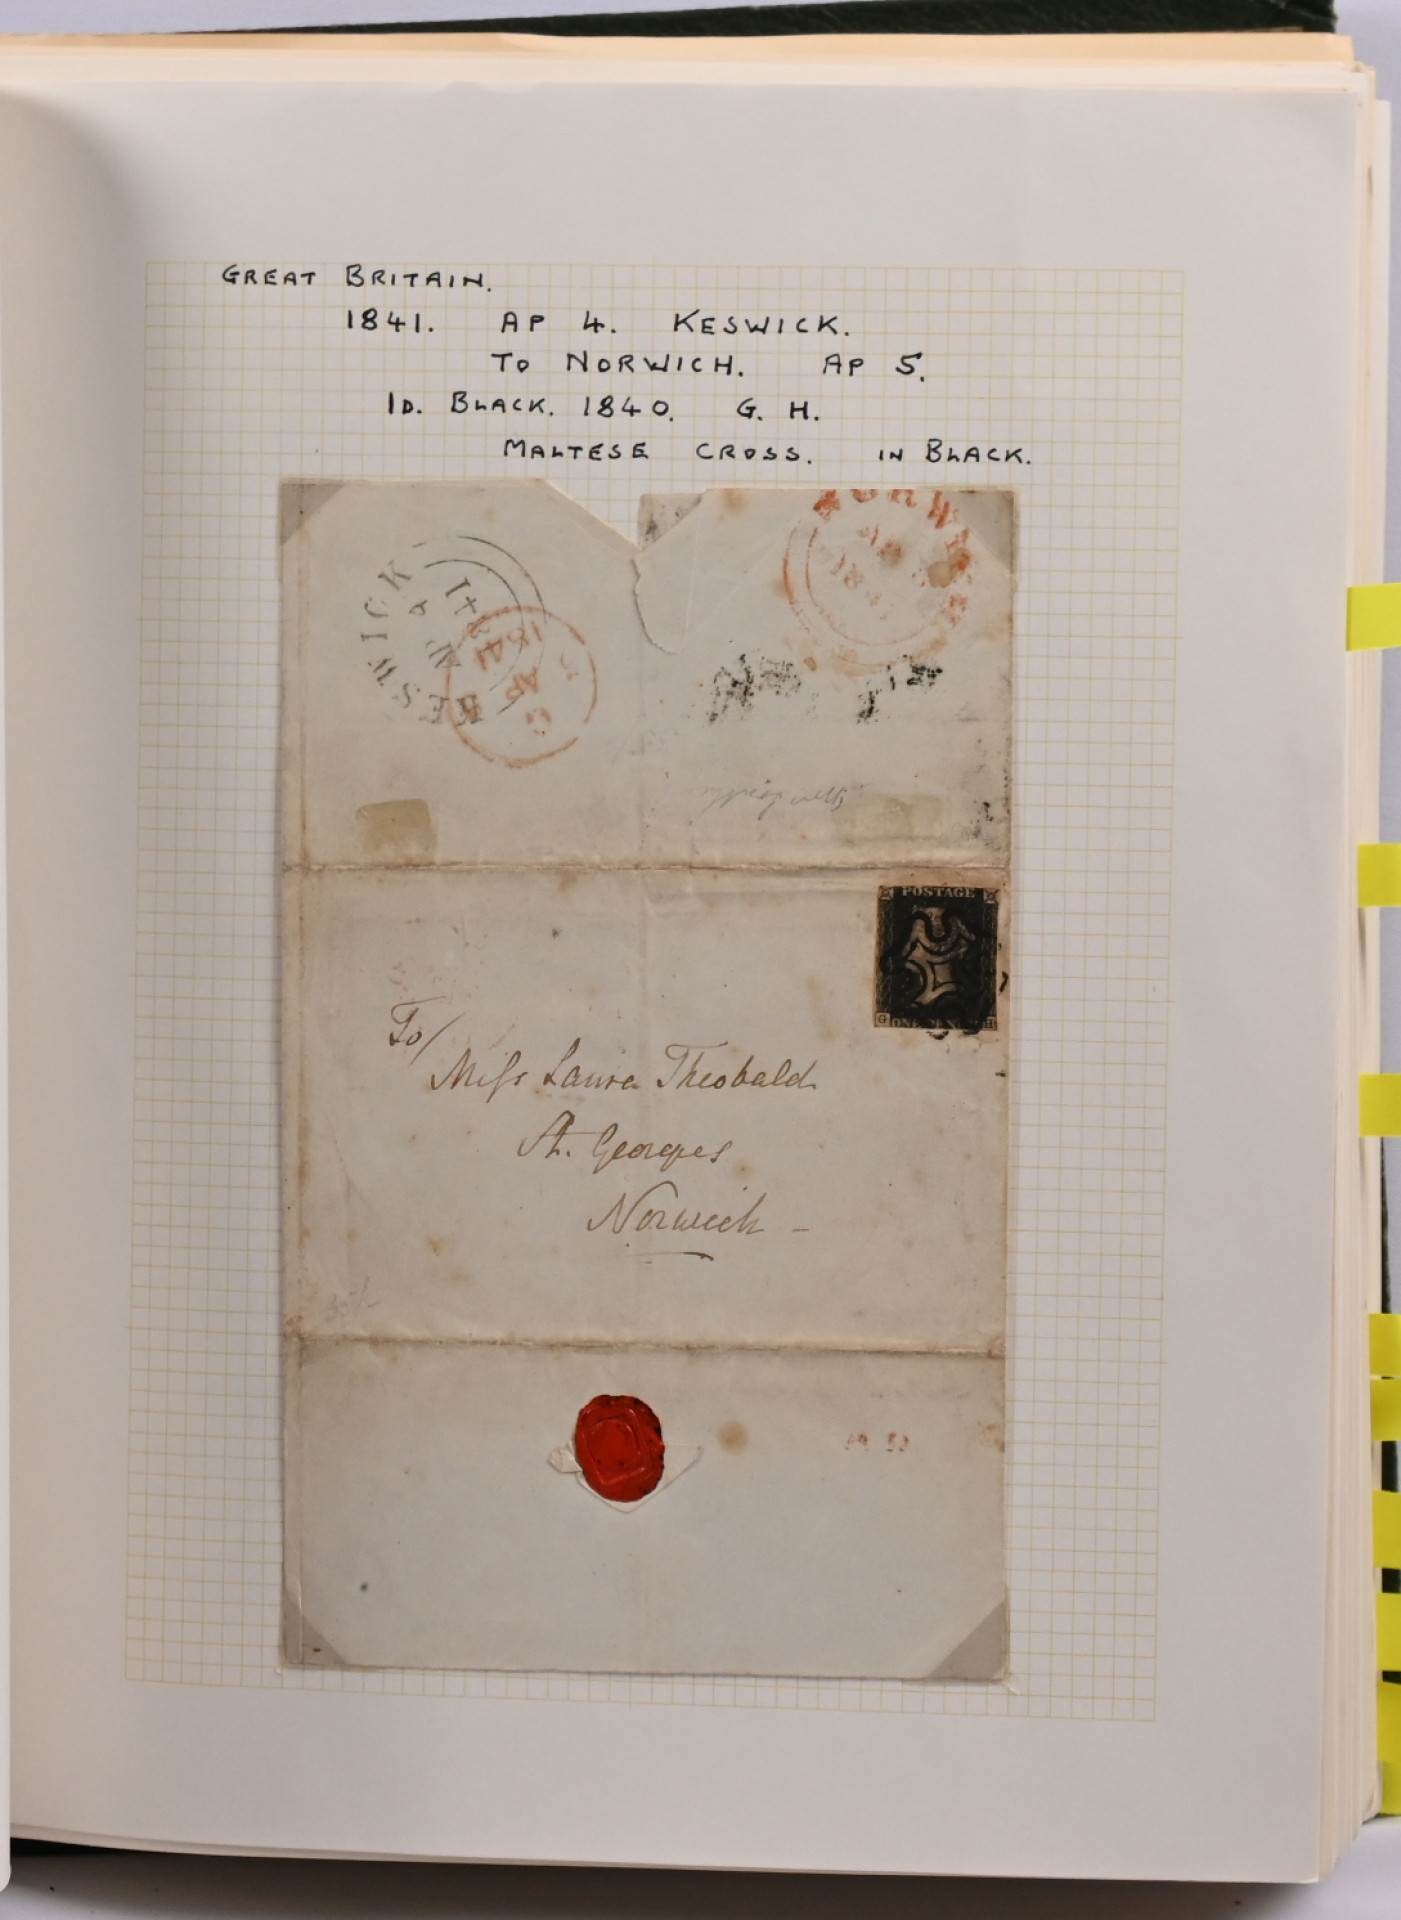 GREAT BRITAIN.
1841. AP 4. KESWICK.
TO NORWICH. AP 5.
1D. BLACK. 1840. G. H.
MALTESE CROSS. IN BLACK.
KESWICK
1841
AP
POSTAGE
G ONE PENNY H
To/
Miss Laura Theobald
St. Georges
Norwich -